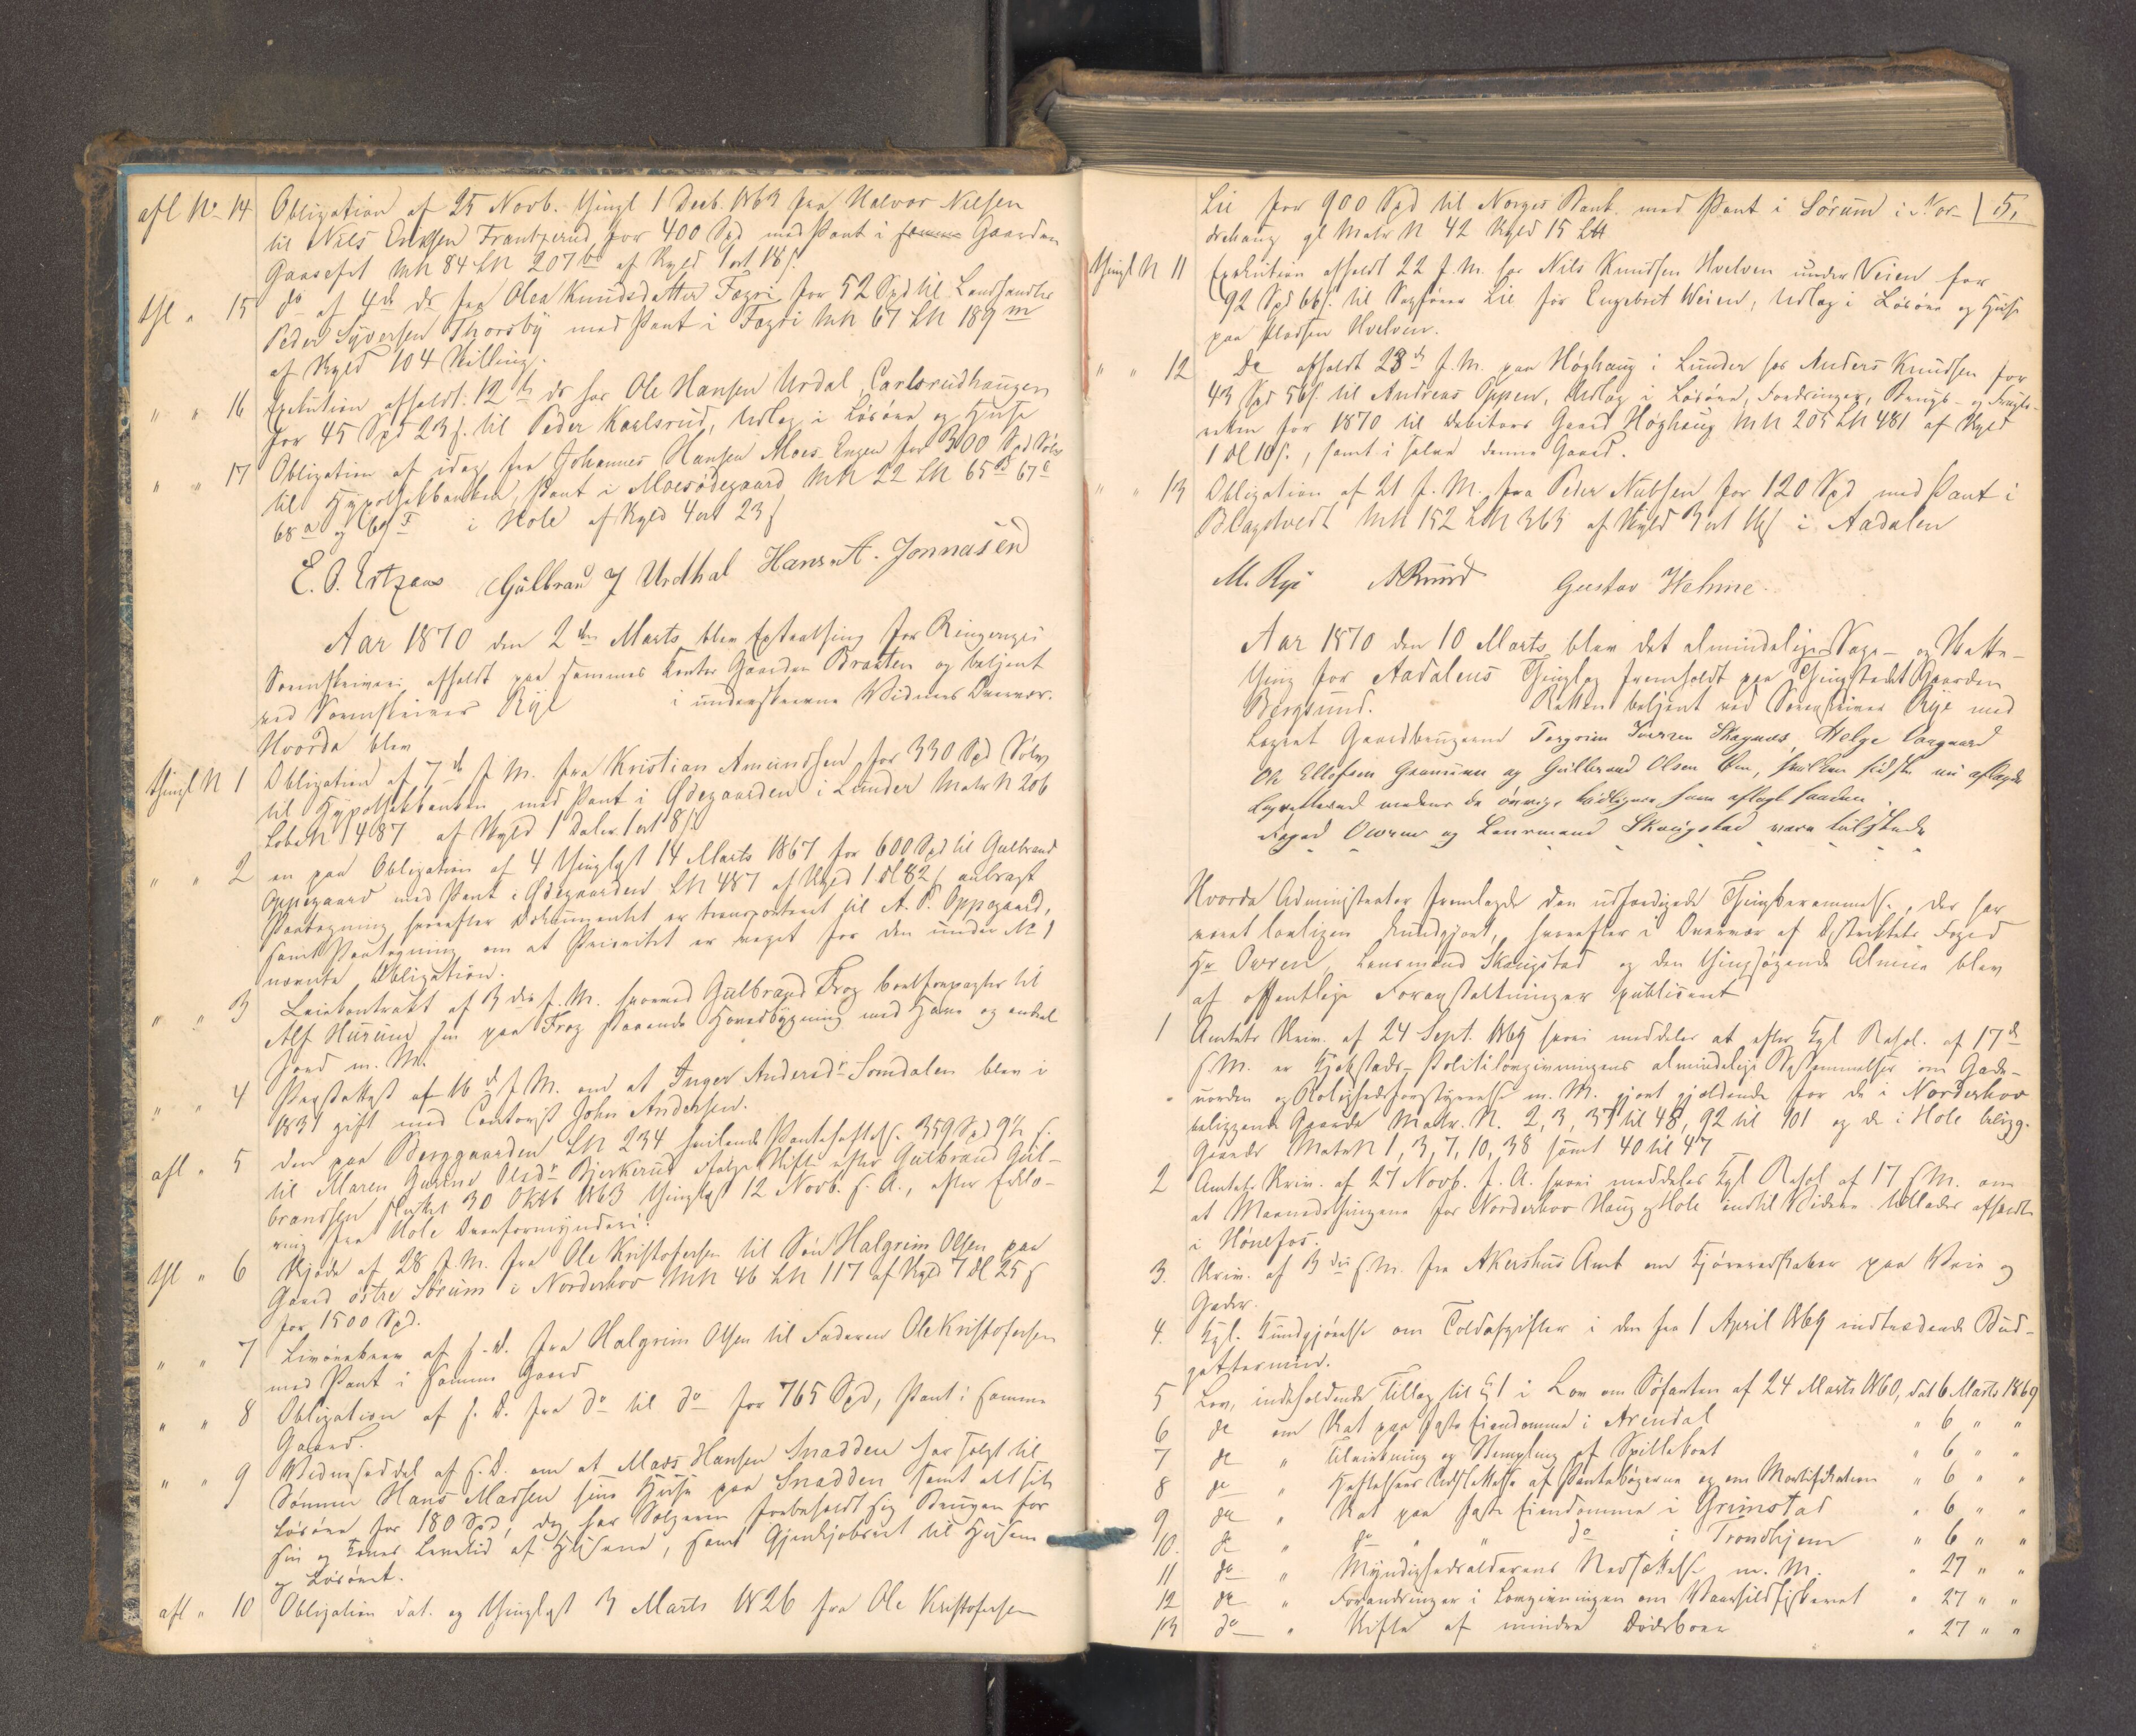 afl No 14 Obligation af 25 Novb. thingl 1 Decb. 1863 fra Halvor Nilsen
til Nils Eriksen Frantzerud for 400 Spd med Pant i samme Gaarden
Gaasefet MN 84 LN 207 b af Skyld 1 ort 18 s.
thl " 15 do af 4de ds fra Olea Knudsdatter Fægri for 52 Spd til Landhandler
Peder Syversen Thorsby med Pant i Fægri MN 67 LN 189 m
af Skyld 104 Skilling.
" " 16 Exekution afholdt 12te ds hos Ole Hansen Urdal, Carlsrudhaugen
for 45 Spd 23 s. til Peder Karlsrud, Udlæg i Løsøre og Huse
" " 17 Obligation af idag fra Johannes Hansen Moes Engen for 300 Spd Sølv
til Hypothekbanken, Pant i Moesødegaard MN 22 LN 65 67
68 a og 69 i Hole af Skyld 4 ort 23 s
E. O. Gulbran J Urdhal Hans A. Jonnasen
Aar 1870 den 2den Marts blev Extrathing for Ringeriges
Sorenskriveri afholdt paa sammes Kontor Gaarden Braaten og betjent
ved Sorenskriver Rye i underskrevne Vidners Overvær.
Hvorda blev
thingl N 1 Obligation af 7de f. M. fra Kristian Amundsen for 330 Spd Sølv
til Hypothekbanken med Pant i Ødegaarden i Lunder Matr N 206
LobeN 487 af Skyld 1 Daler 1 ort 8 s.
" " 2 en paa Obligation af 4 thinglyst 14 Marts 1867 for 600 Spd til Gulbrand
Oppegaard med Pant i Ødegaarden LN 487 af Skyld 1 Dl 82 s anbragt
Paategning, hvorefter Dokumentet er transporteret til A. P. Oppegaard,
samt Paategning om at Prioritet er veget for den under No 1
nævnte Obligation.
" " 3 Leiekontrakt af 3die f. M. hvorved Gulbrand Frog bortforpagter til
Alf Hurum sin paa Frog staaende Hovedbygning med Have og endel
Jord m. M.
" " 4 Præsteattest af 16de f. M. om at Inger Andersdr Semdalen blev i
1831 gift med Contorist John Andersen.
afl " 5 den paa Berggaarden LN 234 hvilende Pantehæftelse 359 Spd 94 s.
til Maren Gurine Olsdr Bjerkerud ifølge Skifte efter Gulbrand Gul-
brandsen sluttet 30 Oktb 1863 thinglyst 12 Novb. s. A., efter Erklæ-
ring fra Hole Overformynderi.
thl " 6 Skjøde af 28 f. M. fra Ole Kristofersen til Søn Halgrim Olsen paa
Gaard østre Sørum i Norderhov MN 46 LN 117 af Skyld 7 Dl 25 s
for 1500 Spd.
" " 7 Livørebrev af s. D. fra Halgrim Olsen til Faderen Ole Kristofersen
med Pant i samme Gaard
" " 8 Obligation af s. D. fra do til do for 765 Spd, Pant i samme
Gaard.
" " 9 Vidnefæddel af s. D. om at Mads Hansen Snadden har solgt til
Sønnen Hans Madsen sine Huse paa Snadden samt alt sit
Løsøre for 180 Spd, dog har Sælgeren forbeholdt sig Brugen for
sin og Kones Levetid af Husene, samt Gjenkjøbsret til Husene
og Løsøret.
afl " 10 Obligation dat. og thinglyst 3 Marts 1826 fra Ole Kristofersen
Lie for 900 Spd til Norges Bank med Pant i Sørum i Nor- 5.
derhaug gl Matr N 42 Skyld 15 L
thingl N 11 Exekution afholdt 22 f. M. hos Nils Knudsen Hvelven under Veien for
92 Spd 66 s. til Sagfører Lie for Engebret Weien, Udlæg i Løsøre og Huse
paa Pladsen Hvelven.
" " 12 do afholdt 23de f. M. paa Høghaug i Lunder hos Anders Knudsen for
43 Spd 56 s. til Andreas Oppen, Udlæg i Løsøre, Fordringer, Brugs- og Frugts-
retten for 1870 til Debitors Gaard Høghaug MN 205 LN 481 af Skyld
1 Dl 10 s., samt i selve denne Gaard.
" " 13 Obligation af 21 f. M. fra Peder Nubsen for 120 Spd med Pant i
Blagstvedt MN 152 LN 363 af Skyld 3 ort i Aadalen
M. Rye A Ruud Gustav Hehme.
Aar 1870 den 10 Marts blev det almindelige Sage- og Skatte-
thing for Aadalens Thinglag fremholdt paa Thingstedet Gaarden
Bergsund. Retten betjent ved Sorenskriver Rye med
Lagret Gaardbrugerne Torgrim Iversen Skagnæs, Helge Vaagaard
Ole Ellefsen Granum og Gulbrand Olsen Øen, hvilken sidste nu aflagde
Lagretteseed medens de øvrige tidligere have aflagt saadan
Foged Owren og Lensmand Skougstad vare tilstede
Hvorda Administrator fremlagde den udfærdigede Thingberammelse, der har
været lovligen kundgjort, hvorefter i Overvær af Distriktets Foged
Hr Owren, Lensmand Skougstad og den thingsøgende Almue blev
af offentlige Foranstaltninger publiceret
1 Amtets Skriv. af 24 Sept. 1869 hvori meddeles at efter Kgl Resol. af 17de
s. M. er Kjøbstads-Politilovgivningens almindelige Bestemmelser om Gade-
uorden og Rolighedsforstyrrelse m. M. gjort gjældende for de i Norderhov
beliggende Gaarde Matr. N. 2, 3, 37 til 48, 92 til 101 og de i Hole belig-
Gaarde MatrN 1, 3, 7, 10, 38 samt 40 til 47
2 Amtets Skriv. af 27 Novb. f. A. hvori meddeles Kgl Resol af 17 s M. om
at Maanedsthingene for Norderhov Haug og Hole indtil Videre tillades afholdt
i Hønefos.
3. Skriv. af 3die s. M. fra Akershus Amt om Kjøreredskaber paa Veie og
Gader.
4. Kgl. Kundgjørelse om Toldafgifter i den fra 1 April 1869 indtrædende Bud-
gettermin.
5 Lov, indeholdende Tillæg til § 1 i Lov om Søfarten af 24 Marts 1860, dat 6 Marts 1869
6 do om Skat paa faste Eiendomme i Arendal " 6 " "
7 do " Tilvirkning og Stempling af Spillekort " 6 " "
8 do " Hæftelsers Udslettelse af Pantebøgerne og om Mortifikation " 6 " "
9 do " Skat paa faste Eiendomme i Grimstad " 6 " "
10. do " do " " do i Trondhjem " 6 " "
11 do " Myndighedsalderens Nedsættelse m. M. " 27 " "
12 do " Forandringer i Lovgivningen om Vaarsildfiskeriet " 27 " "
13 do " Skifte af mindre Dødsboer " 27 " "